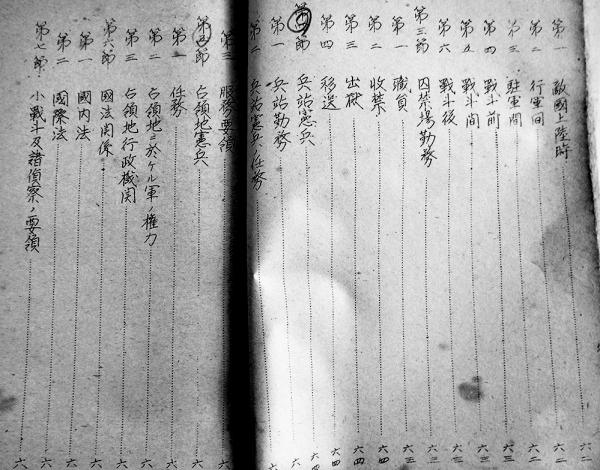 第一 敵國上陸時 六二
第二 行軍間 六二
第三 駐軍間 六三
第四 戰斗前 六三
第五 戰斗間 六三
第六 戰斗後 六三
第三節 囚禁場勤務 六三
第一 職員 六三
第二 收禁 六四
第三 出獄 六四
第四 移送 六四
第四節 兵站憲兵 六四
第一 兵站勤務 六
第二 兵站憲兵ノ任務 六
第三 服務要領 六
第五節 占領地憲兵 六
第一 任務 六
第二 占領地ニ於ケル軍ノ權力 六
第三 占領地行政機関 六
第六節 國法関係 六
第一 國内法 六
第二 國際法 六
第七節 小戰斗及諸偵察ノ要領 六